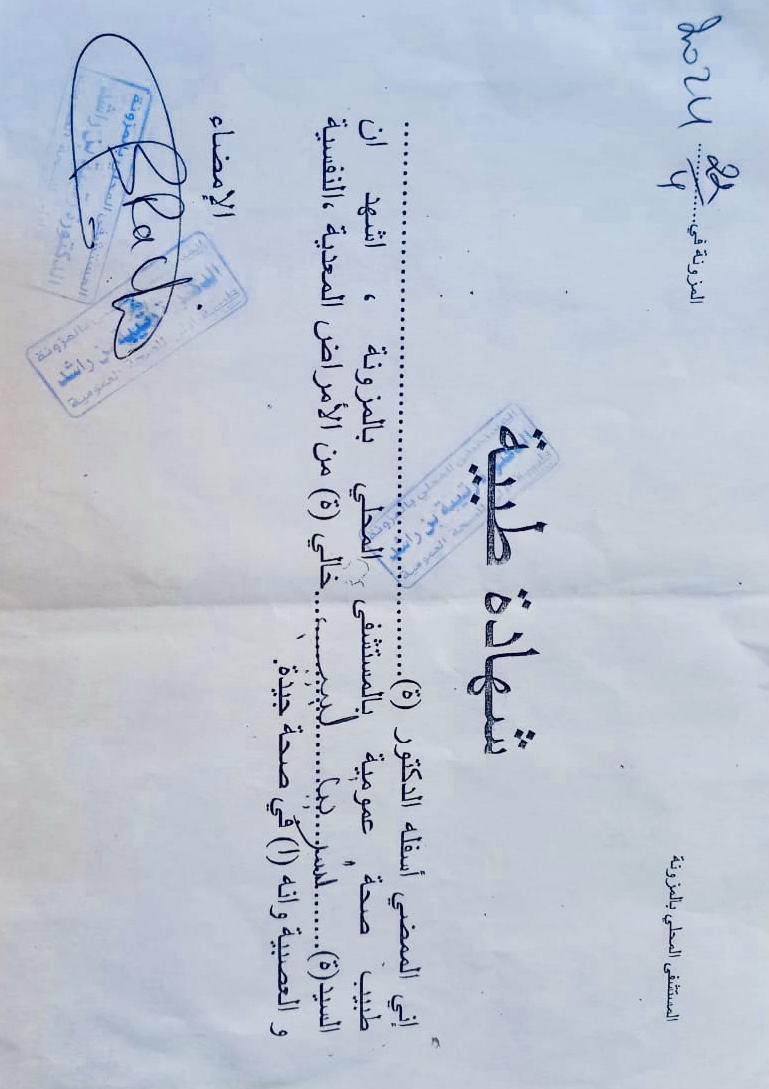 المستشفى المحلي بالمزونة
المزونة في 22/4 2024
شهادة طبية
إني الممضي أسفله الدكتور (ة)........................
طبيب صحة عمومية بالمستشفى المحلي بالمزونة ، اشهد ان
السيد(ة)........ خالي (ة) من الأمراض المعدية ،النفسية
و العصبية وانه (ا) في صحة جيدة.
الإمضاء
بن راشد
للصحة العمومية